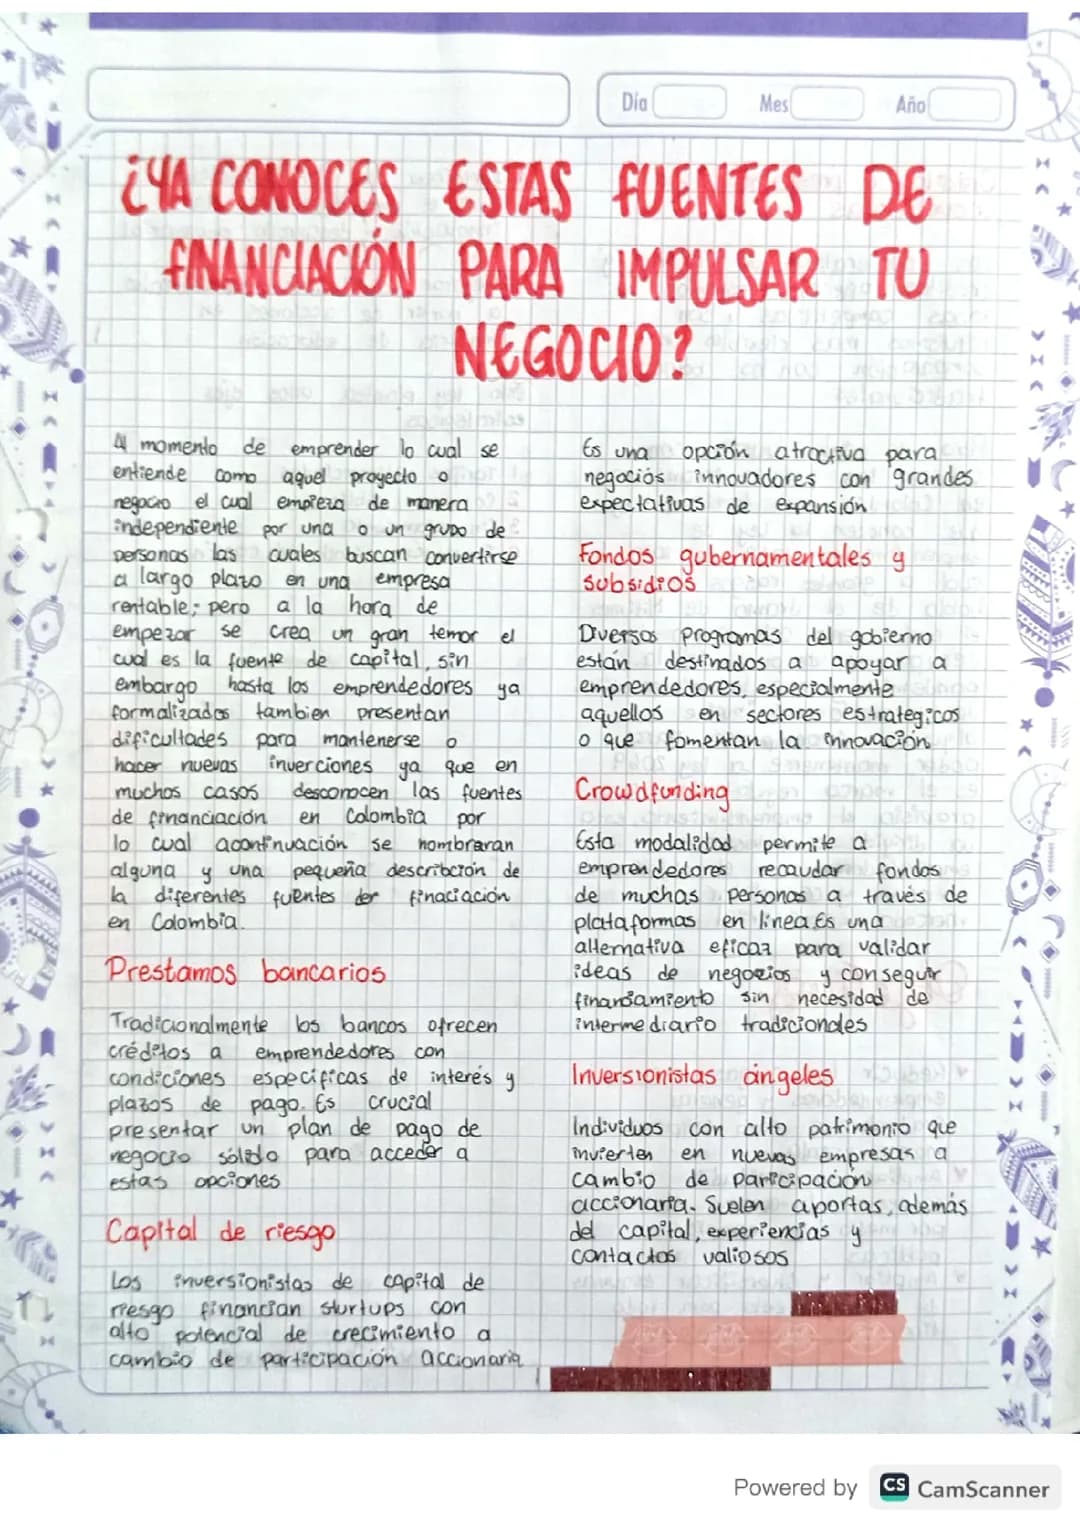 Día Mes Año
¿YA CONOCES ESTAS FUENTES DE
FINANCIACIÓN PARA IMPULSAR TU
NEGOCIO?
Al momento de emprender lo cual se
entiende como aquel proyecto o
negocio el cual empieza de manera
independiente por una o un grupo de
personas las cuales buscan convertirse
a largo plazo en una empresa
rentable; pero a la hora de
empezar se crea un gran temor el
cual es la fuente de capital, sin
embargo hasta los emprendedores ya
formalizados tambien presentan
dificultades para mantenerse o
hacer nuevas inverciones ya que en
muchos casos desconocen las fuentes
de financiación en Colombia por
lo cual acontinuación se nombraran
alguna y una pequeña describción de
la diferentes fuentes der finaciación
en Colombia.
Prestamos bancarios
Tradicionalmente los bancos ofrecen
créditos a emprendedores con
condiciones especificas de interés y
plazos de pago. Es crucial
presentar un plan de pago de
negocio sólido para acceder a
estas opciones
Capital de riesgo
Los inversionistas de capital de
riesgo financian sturtups con
alto potencial de crecimiento a
cambio de participación accionaria
Es una opción atractiva para
negociós innovadores con grandes
expectativas de expansión
Fondos gubernamentales y
subsidios
Diversos programas del gobierno
están destinados a apoyar a
emprendedores, especialmente
aquellos en sectores estrategicos
o que fomentan la innovación
Crowdfunding
Esta modalidad permite a
emprendedores recaudar fondos
de muchas personas a través de
plataformas en linea.Es una
alternativa eficaz para validar
ideas de negocios y conseguir
financiamiento sin necesidad de
intermediario tradicionales
Inversionistas ángeles
Individuos con alto patrimonio que
invierten en nuevas empresas a
cambio de participación
accionaria. Suelen aportas, además
del capital, experiencias y
contactos valiosos
Powered by CS CamScanner